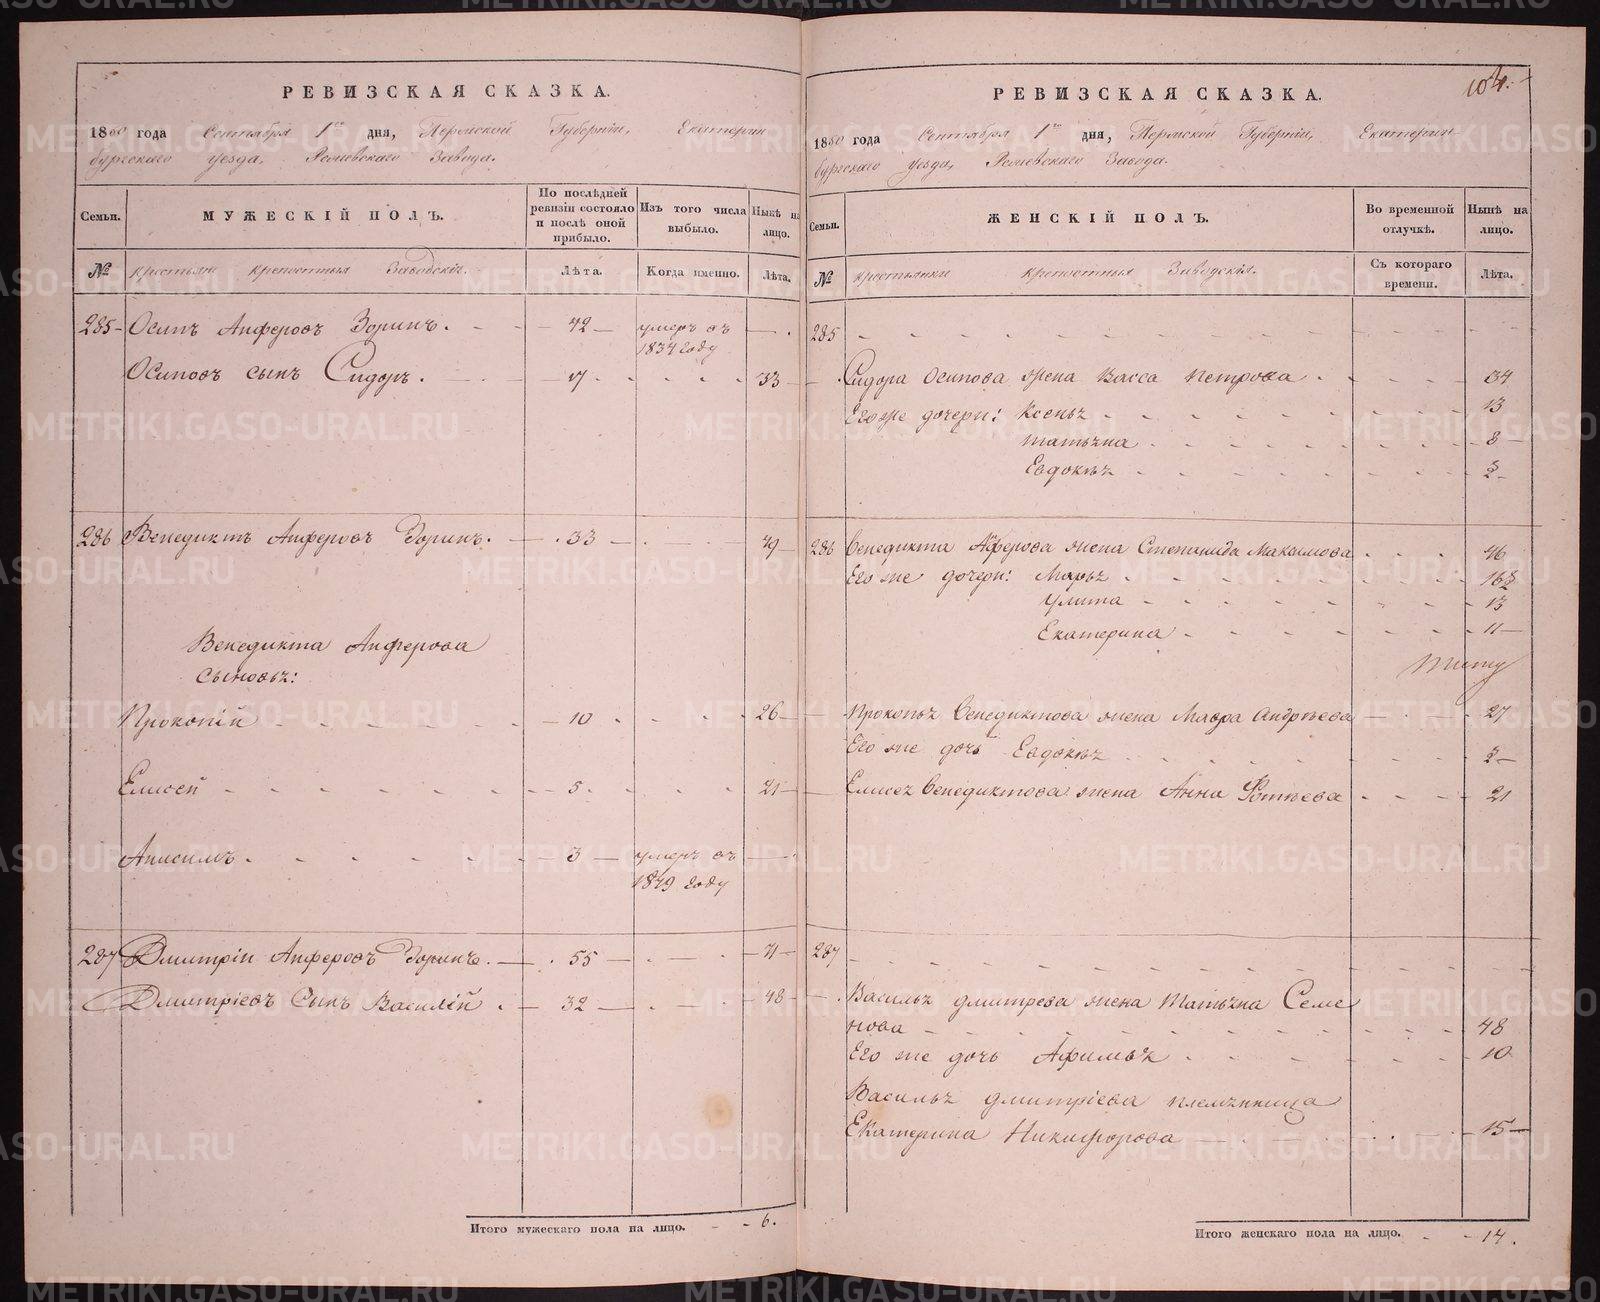 РЕВИЗСКАЯ СКАЗКА.
1850 года Сентября 1го дня, Пермской Губернiи, Екатерин
бургскаго уезда, Завода.
Семьи.
МУЖЕСКІЙ ПОЛЪ.
По послѣдней ревизіи состояло и послѣ оной прибыло.
Изъ того числа выбыло.
Нынѣ на лицо.
№
Крестьяне крепостныя Заводскiе.
Лѣта.
Когда именно.
Лѣта.
285 Осипъ Анферовъ Зоринъ. 42 умеръ въ
1834 году
Осиповъ сынъ Сидоръ. 17 33
286 Венедиктъ Анферовъ Зоринъ. 33 49
Венедикта Анферова
сыновья:
Прокопiй 10 26
Елисей 5 21
Анисимъ 3 умеръ въ
1849 году
287 Дмитрiй Анферовъ Зоринъ. 55 71
Дмитрiевъ Сынъ Василiй 32 48
Итого мужескаго пола на лицо. 6.
104.
РЕВИЗСКАЯ СКАЗКА.
1850 года Сентября 1го дня, Пермской Губернiи, Екатерин-
бургскаго уезда, Завода.
Семьи.
ЖЕНСКІЙ ПОЛЪ.
Во временной отлучкѣ.
Нынѣ на лицо.
№
крестьянки крепостныя Заводскiя.
Съ котораго времени.
Лѣта.
285
Сидора Осипова жена Васса Петрова 34
Его же дочери: Ксенья 13
Татьяна 8
Евдокья 2
286 Венедикта Анферова жена Степанида Максимова 46
Его же дочери: Марья
Улита 13
Екатерина 11
Прокопья Венедиктова жена Мавра Андреева 27
Его же дочь Евдокья 2
Елисея Венедиктова жена Анна Фотеева 21
287
Василья Дмитрева жена Татьяна Семе
нова 48
Его же дочь Афимья 10
Василья Дмитрiева племянница
Екатерина Никифорова 15
Итого женскаго пола на лицо. 14.
METRIKI.GASO-URAL.RU